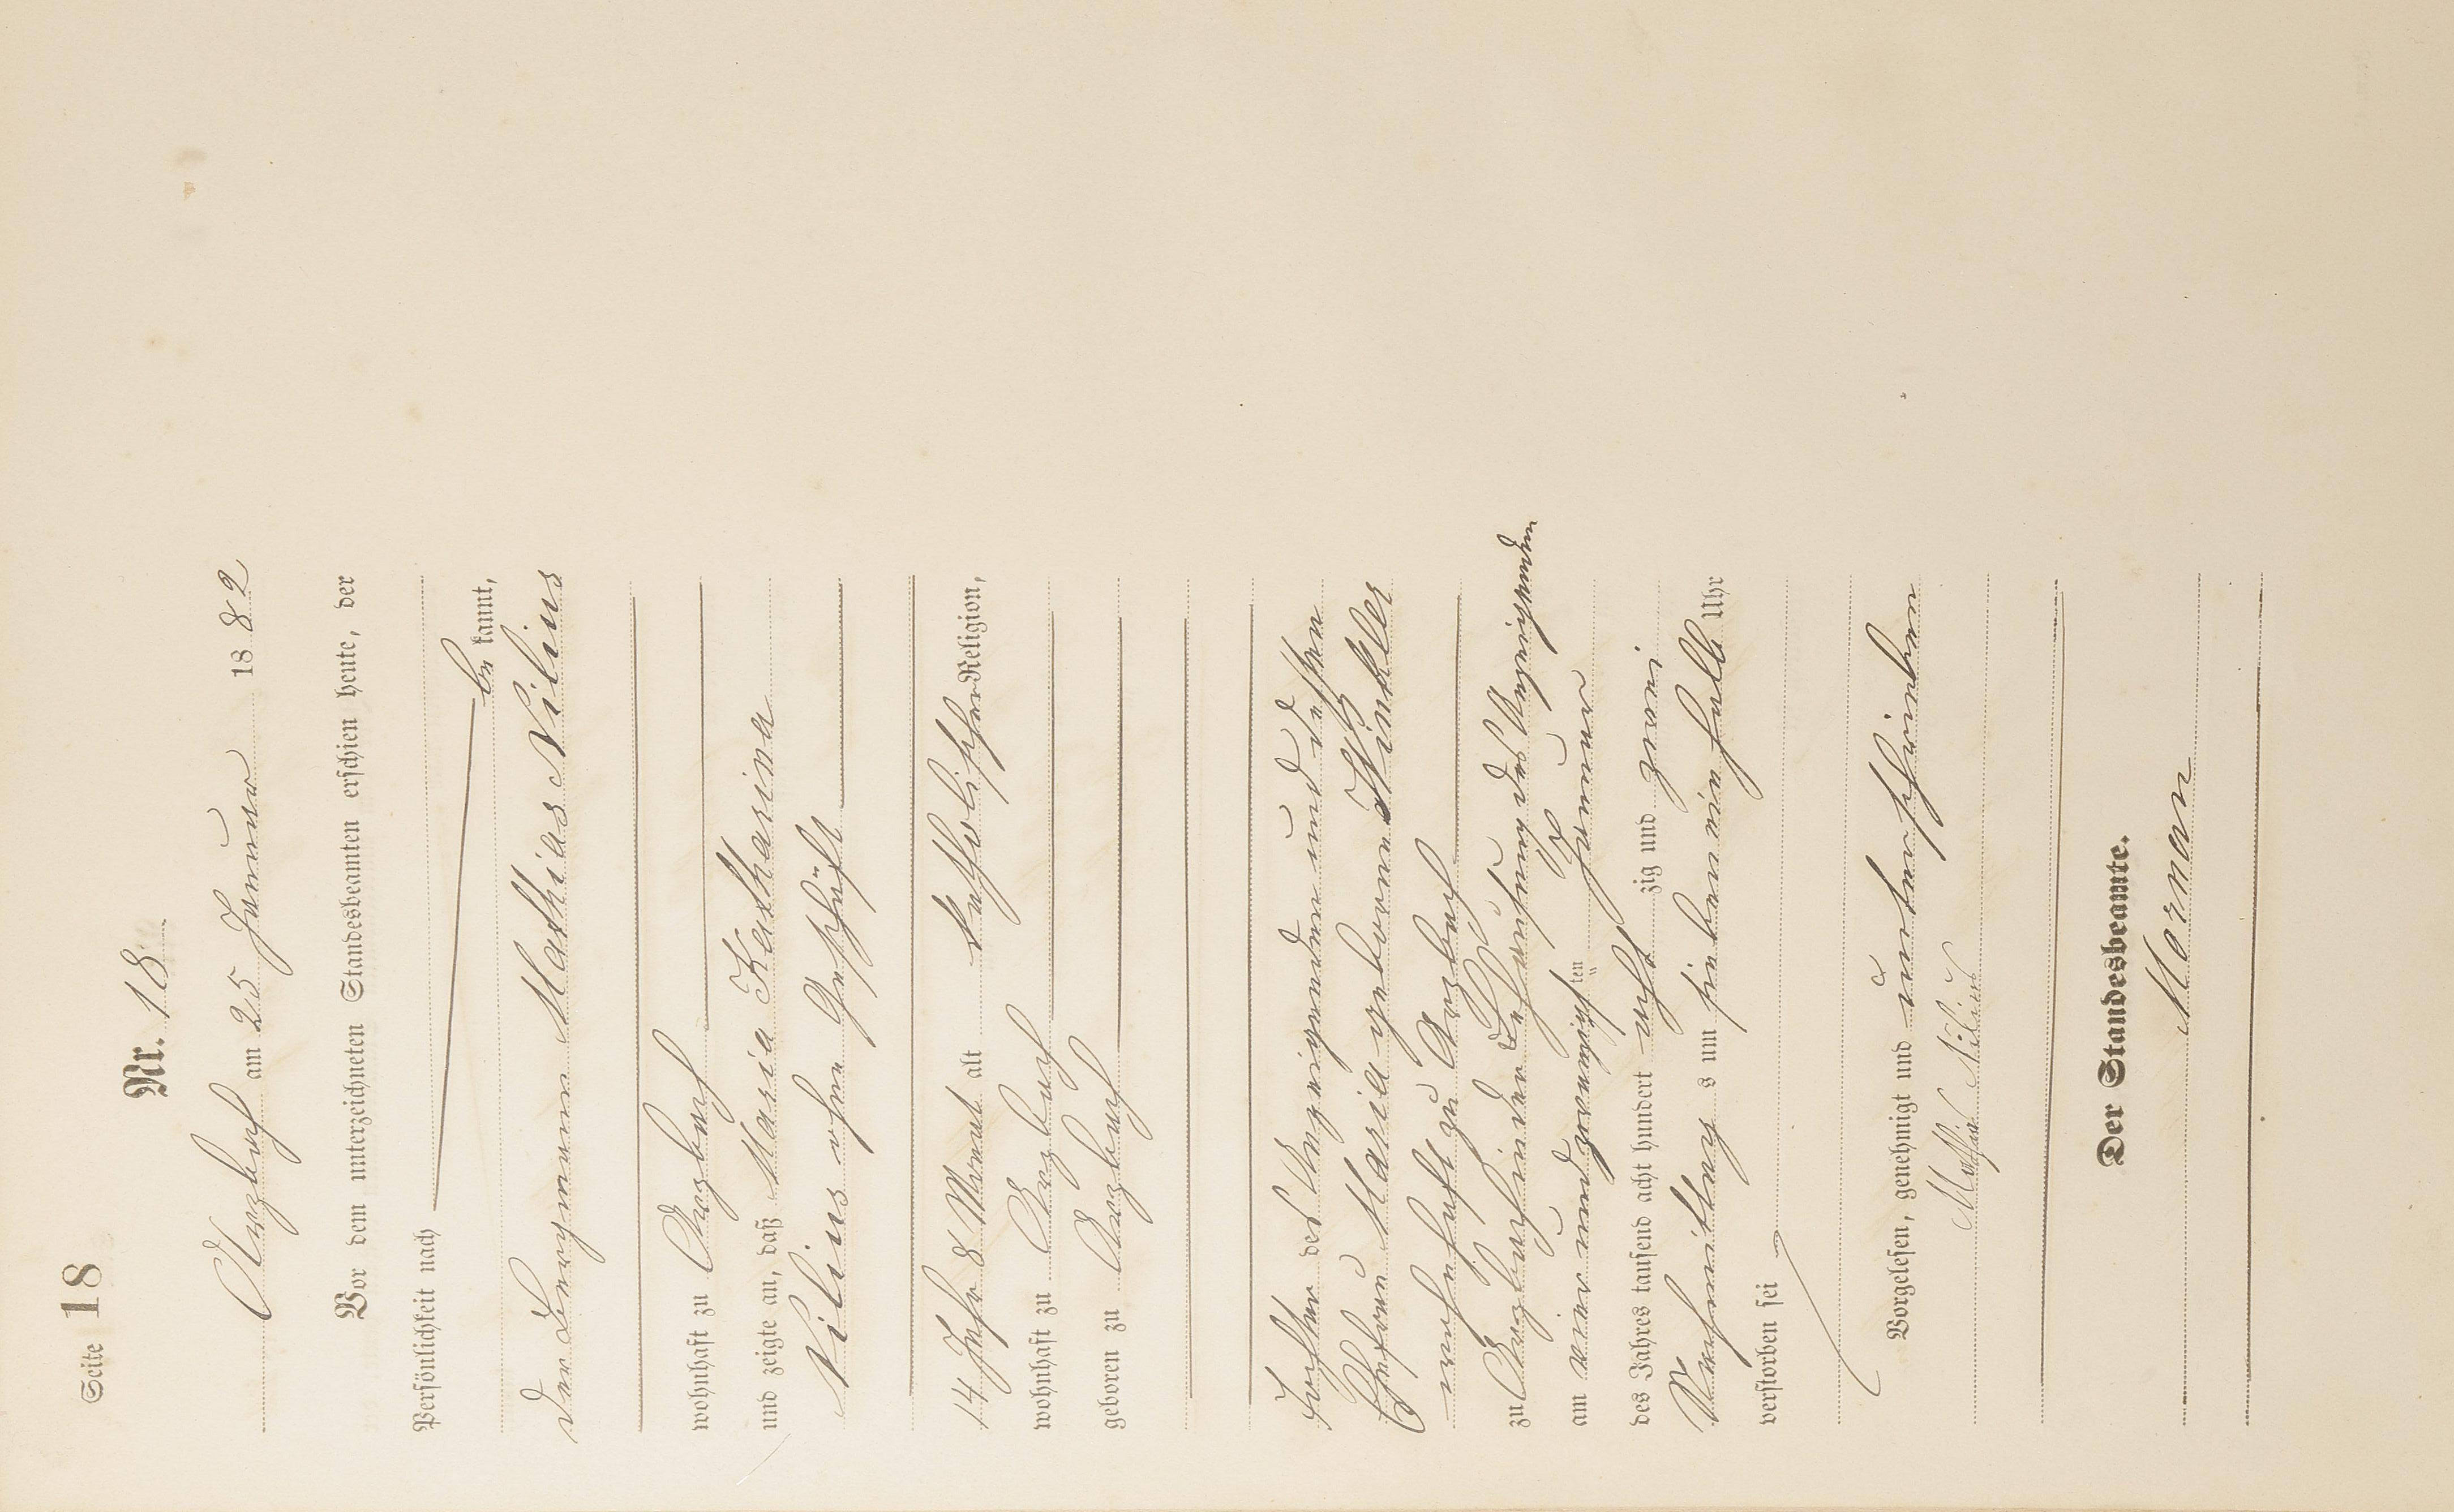 Seite 18
Nr. 18
Arzbach am 25 Januar 1882
Vor dem unterzeichneten Standesbeamten erschien heute, der
Persönlichkeit nach
be kannt,
der Bergmann Mathias Nilius
wohnhaft zu Arzbach
und zeigte an, daß Maria Katharina
Nilius ohne Geschäft
14 Jahr 8 Monat alt katholischer Religion,
wohnhaft zu Arzbach
geboren zu Arzbach
Tochter des Anzeigenden und dessen
Ehefrau Maria geborene Winkler
wohnhaft zu Arzbach
zu Arzbach in der Behausung des Anzeigenden
am vier und zwanzigsten Januar
des Jahres tausend acht hundert acht zig und zwei
Vormittags um sieben ein halb Uhr
verstorben sei
Vorgelesen, genehmigt und unterschrieben
Mathias Nilius
Der Standesbeamte.